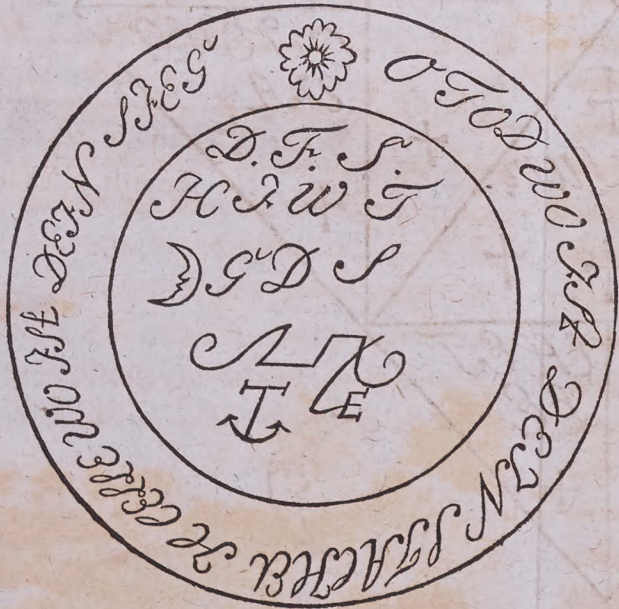 O TOD WO IST DEIN STACHEL HŒLLE WO IST DEIN SIEG
D. F. S.
H I W T
☽ G D S
E